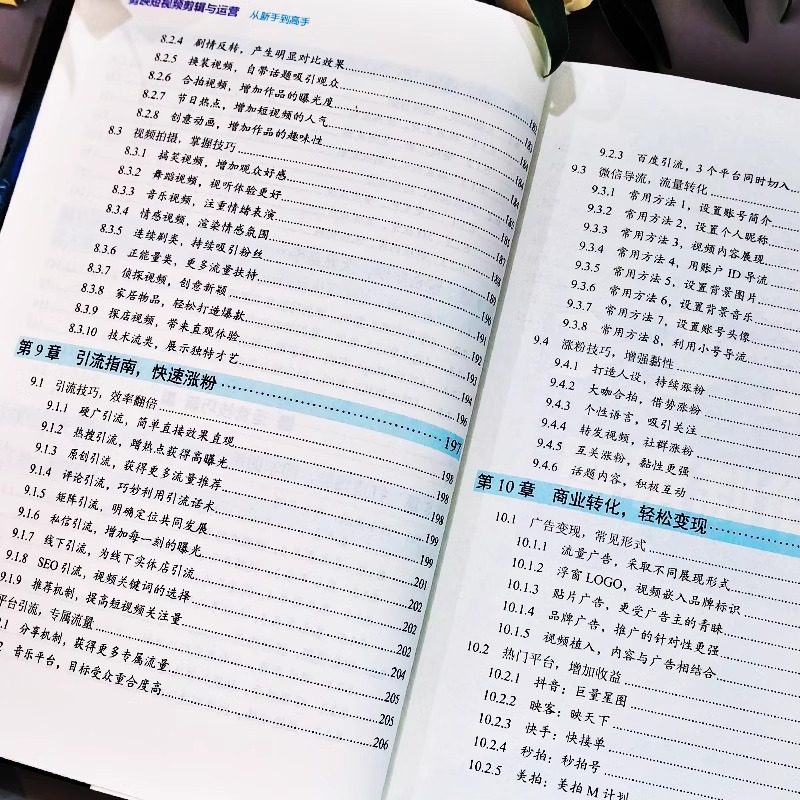 剪映短视频剪辑与运营 从新手到高手
8.2.4 剧情反转，产生明显对比效果
8.2.5 换装视频，自带话题吸引观众
8.2.6 合拍视频，增加作品的曝光度
8.2.7 节日热点，增加短视频的人气
8.2.8 创意动画，增加作品的趣味性
8.3 视频拍摄，掌握技巧
8.3.1 搞笑视频，增加观众好感
8.3.2 舞蹈视频，视听体验更好
8.3.3 音乐视频，注重情绪表演
8.3.4 情感视频，渲染情感氛围 189
8.3.5 连续剧类，持续吸引粉丝 190
8.3.6 正能量类，更多流量扶持 191
8.3.7 侦探视频，创意新颖 192
8.3.8 家居物品，轻松打造爆款 193
8.3.9 探店视频，带来直观体验 194
8.3.10 技术流类，展示独特才艺 196
第 9 章 引流指南，快速涨粉 197
9.1 引流技巧，效率翻倍 198
9.1.1 硬广引流，简单直接效果直观 198
9.1.2 热搜引流，蹭热点获得高曝光 198
9.1.3 原创引流，获得更多流量推荐 199
9.1.4 评论引流，巧妙利用引流话术 199
9.1.5 矩阵引流，明确定位共同发展 201
9.1.6 私信引流，增加每一刻的曝光 202
9.1.7 线下引流，为线下实体店引流 202
9.1.8 SEO 引流，视频关键词的选择 202
9.1.9 推荐机制，提高短视频关注量 204
平台引流，专属流量 205
.1 分享机制，获得更多专属流量 205
2 音乐平台，目标受众重合度高 206
9.2.3 百度引流，3 个平台同时切入
9.3 微信导流，流量转化
9.3.1 常用方法 1，设置账号简介
9.3.2 常用方法 2，设置个人昵称
9.3.3 常用方法 3，视频内容展现
9.3.4 常用方法 4，用账户 ID 导流
9.3.5 常用方法 5，设置背景图片
9.3.6 常用方法 6，设置背景音乐
9.3.7 常用方法 7，设置账号头像
9.3.8 常用方法 8，利用小号导流
9.4 涨粉技巧，增强黏性
9.4.1 打造人设，持续涨粉
9.4.2 大咖合拍，借势涨粉
9.4.3 个性语言，吸引关注
9.4.4 转发视频，社群涨粉
9.4.5 互关涨粉，黏性更强
9.4.6 话题内容，积极互动
第 10 章 商业转化，轻松变现
10.1 广告变现，常见形式
10.1.1 流量广告，采取不同展现形式
10.1.2 浮窗 LOGO，视频嵌入品牌标识
10.1.3 贴片广告，更受广告主的青睐
10.1.4 品牌广告，推广的针对性更强
10.1.5 视频植入，内容与广告相结合
10.2 热门平台，增加收益
10.2.1 抖音：巨量星图
10.2.2 映客：映天下
10.2.3 快手：快接单
10.2.4 秒拍：秒拍号
10.2.5 美拍：美拍 M 计划